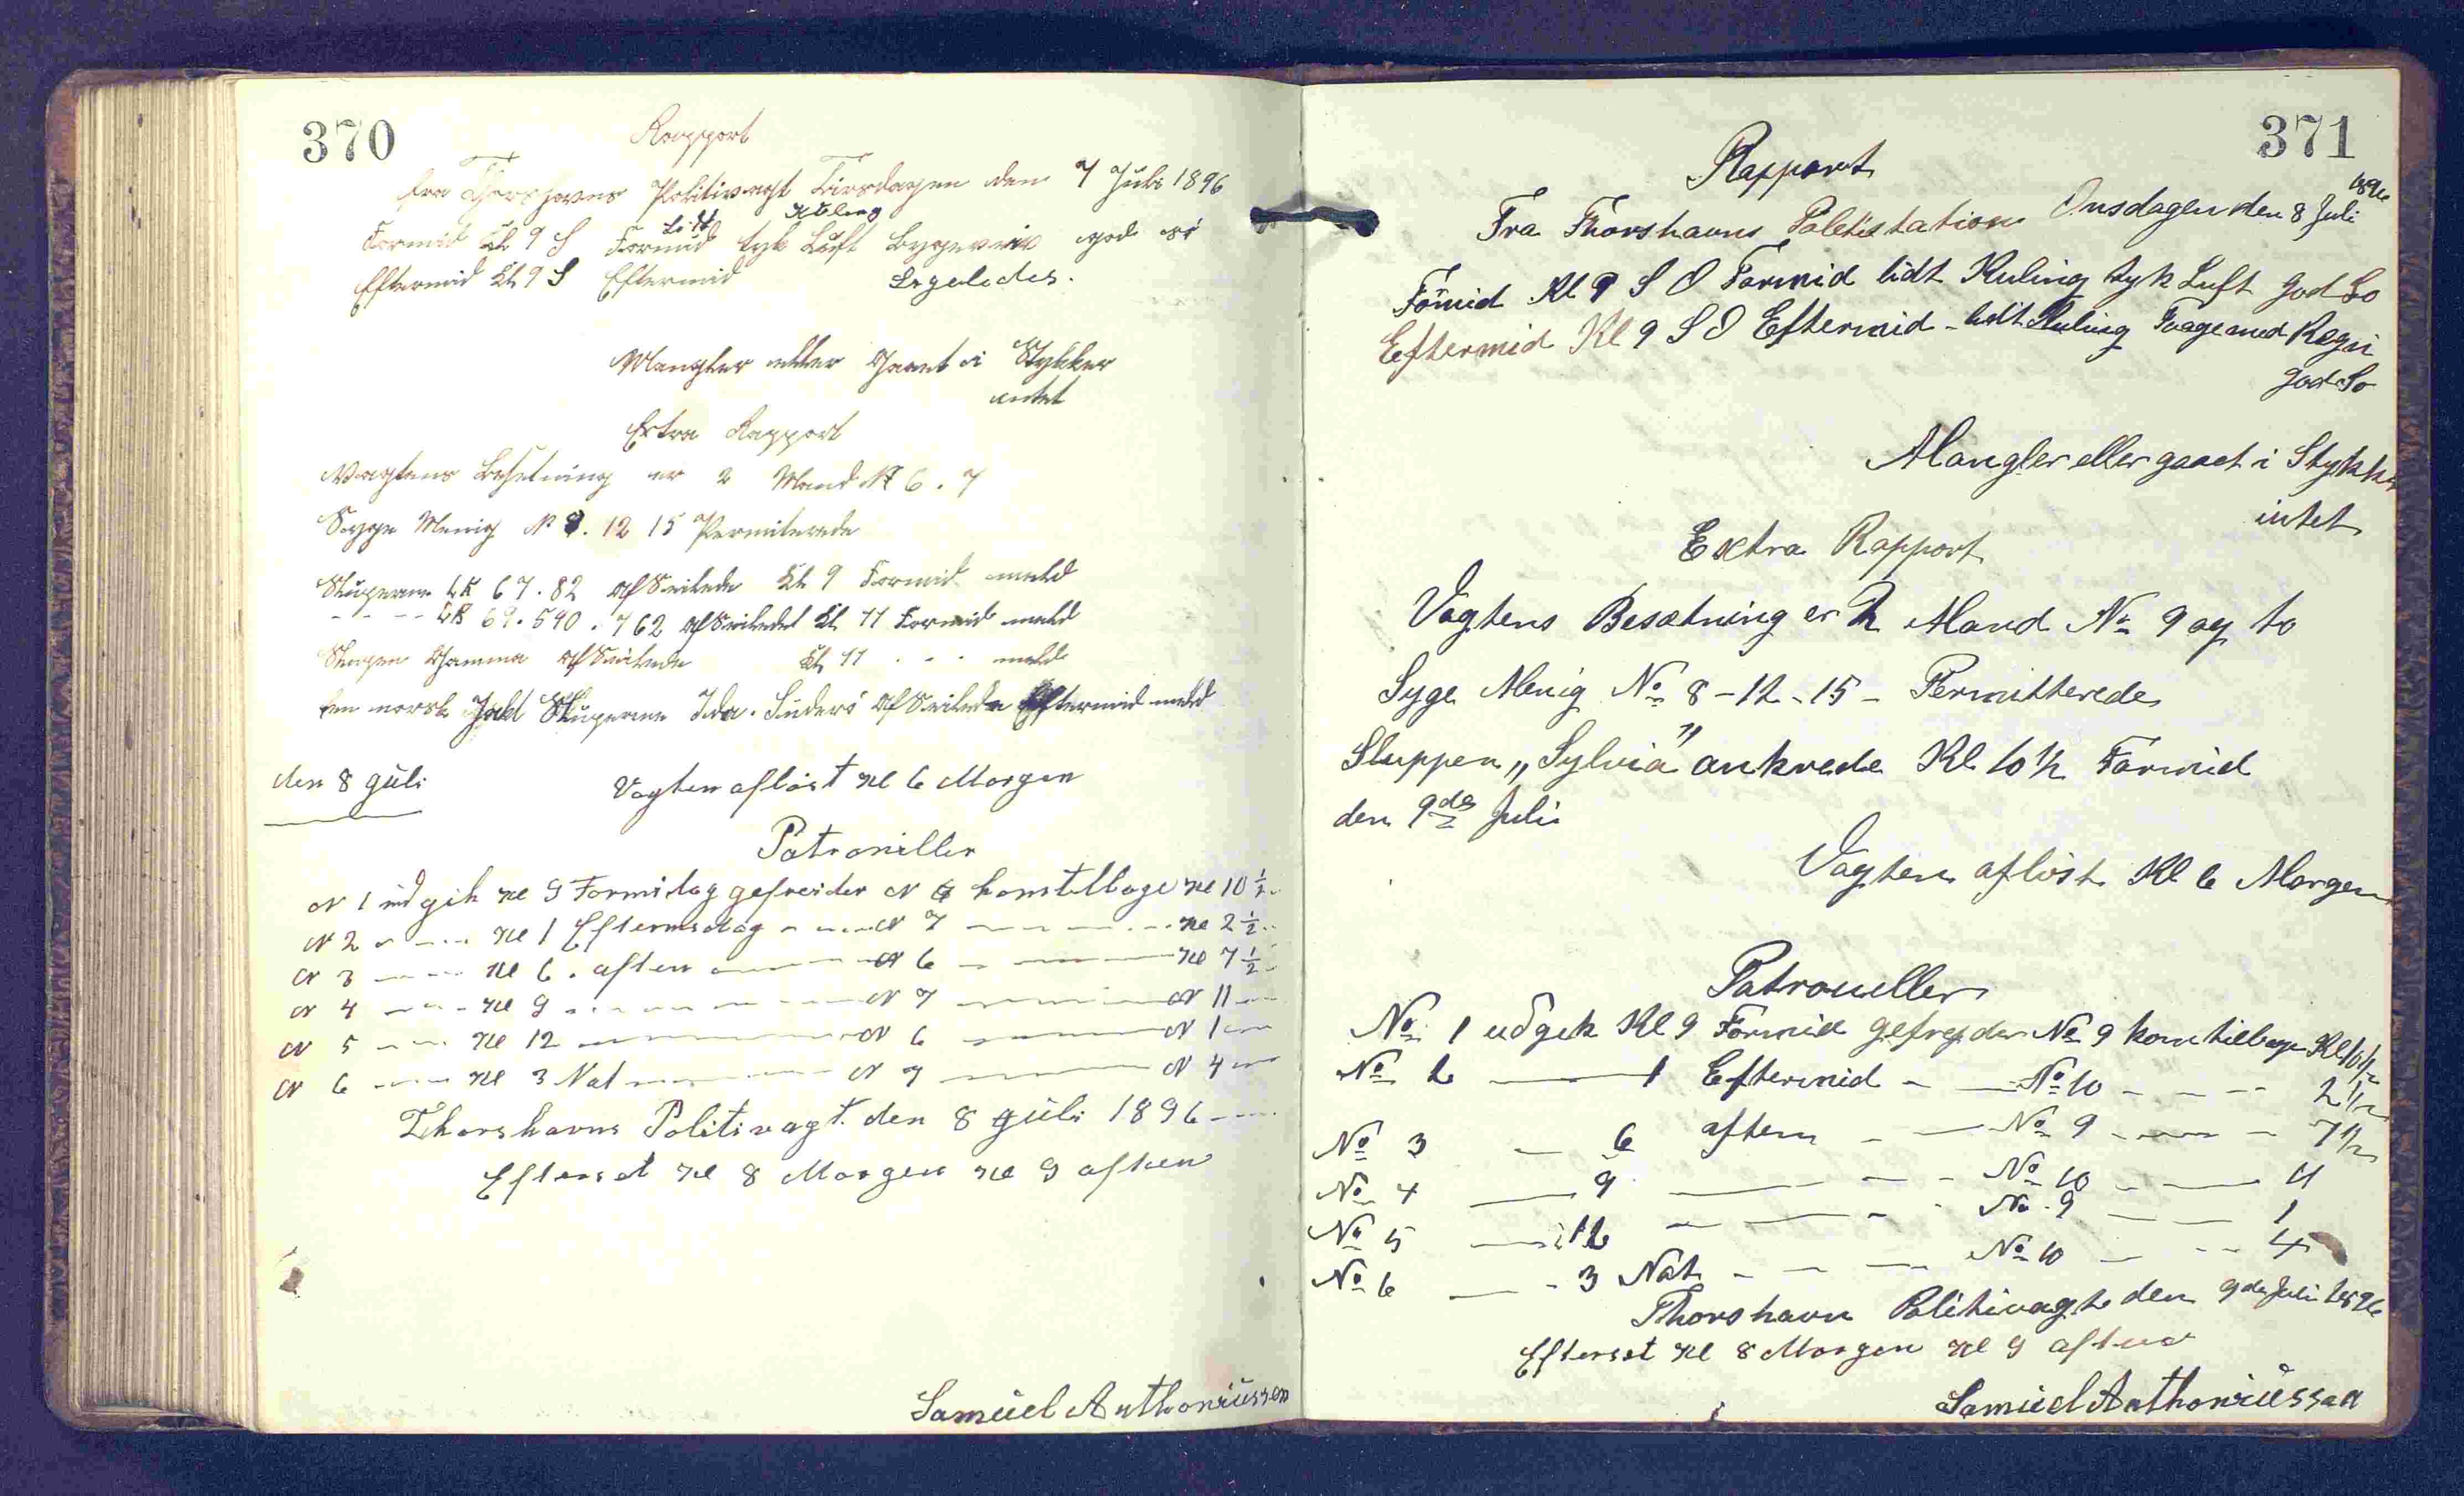 370
Rapport
fra Thorshavns Politivagt Tirsdagen den 7 Juli 1896
Lidt Kuling
Formid Kl 9 S Formid tyk Luft god sö
Eftermid Kl 9 S Eftermid Ligeledes.
Mangler eller Gaaet i Stykker
intet
Extra Rapport
Vagtens Besetning er 2 Mand N 6. 7
Syge Menig N 8. 12 15 Permiterede
Slupperne LK 67. 82 afSeilede Kl 9 Formid meld
- - - LK 69. 590. 762 afSeiledet Kl 11 Formid meld
Sluppen afSeilede Kl 11 - - - meld
En norsk Jakt Slupperne Ida. Suderö afSeilede Eftermid meld
den 8 Juli
Vagten aflöst Kl 6 Morgen
Patroniller
N 1 udgik Kl 9 Formidag gefreider N 6 kom tilbage Kl 10 1/2
N 2 - - - Kl 1 Eftermidag - - - N 7 - - - Kl 2 1/2
N 3 - - - Kl 6. aften - - - N 6 - - - Kl 7 1/2
N 4 - - - Kl 9 - - - N 7 - - - N 11 - -
N 5 - - - Kl 12 - - - N 6 - - - N 1 - -
N 6 - - - Kl 3 Nat - - - N 7 - - - N 4 - -
Thorshavns Politivagt. den 8 Juli 1896 - -
Efterset Kl 8 Morgen Kl 9 aften
Samuel Anthoniussen
371
Rapport
Fra Thorshavns Politistation Onsdagen den 8 Juli 1896
Fömid Kl 9 S O Formid lidt Kuling tyk Luft god So
Eftermid Kl 9 S O Eftermid - lidt Kuling Taage med Regn
god So
Mangler eller gaaet i Stykker
intet
Extra Rapport
Vagtens Besætning er 2 Mand No 9 og 10
Syge Menig No 8 - 12 - 15 - Permitterede
Sluppen „Sylvia" ankrede Kl 10 1/2 Formid
den 9de Juli
Vagten aflöst Kl 6 Morgen
Patrouller
No 1 udgik Kl 9 Formid gefrejder No 9 kom tilbage Kl 10 1/2
No 2 - 1 Eftermid - - No 10 - - - 2 1/2
No 3 - 6 aften - - No 9 - - - 7 1/2
No 4 - 9 - - - No 10 - - 11
No 5 - 12 - - - No 9 - - 1
No 6 - - 3 Nat - - - No 10 - - 4
Thorshavn Politivagt den 9de Juli 1896
Efterset Kl 8 Morgen Kl 9 aften
Samuel Anthoniussen